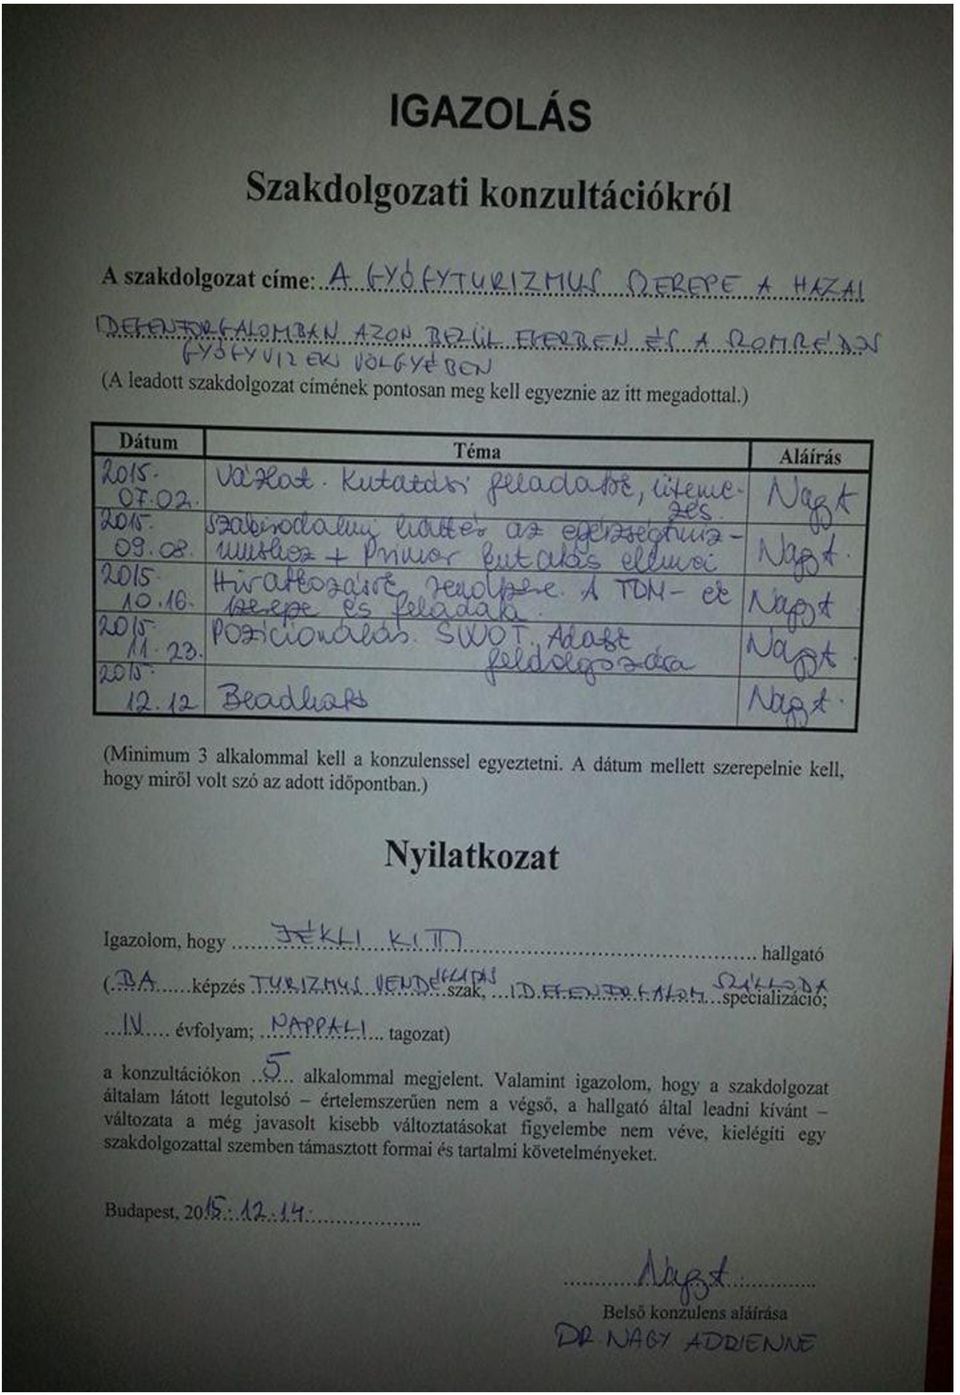 IGAZOLÁS
Szakdolgozati konzultációkról
A szakdolgozat címe: A GYÓGYTURIZMUS SZEREPE A HAZAI
IDEGENFORGALOMBAN AZON BELÜL EGERBEN ÉS A SZOMRÉDOS
GYÓGYVIZEK VÖLGYÉBEN
(A leadott szakdolgozat címének pontosan meg kell egyeznie az itt megadottal.)
Dátum Téma Aláírás
2015. 07.02. Vázlat. Kutatási feladatok, ütemezés. Nagy A
2015. 09.08. Szakirodalmi háttér az egészségturizmushoz + Primer kutatás elemei Nagy A.
2015. 10.16. Hivatkozások rendszere. A TDM-ek szerepe és feladata. Nagy A
2015. 11.23. Pozicionálás. SWOT. Adatok feldolgozása Nagy A.
2015. 12.12 Beadható Nagy A.
(Minimum 3 alkalommal kell a konzulenssel egyeztetni. A dátum mellett szerepelnie kell,
hogy miről volt szó az adott időpontban.)
Nyilatkozat
Igazolom, hogy JÉKLI KITTI hallgató
(BA képzés TURIZMUS VENDÉGLÁTÁS szak, IDEGENFORGALOM SZÁLLODA specializáció;
IV. évfolyam; NAPPALI tagozat)
a konzultációkon 5 alkalommal megjelent. Valamint igazolom, hogy a szakdolgozat
általam látott legutolsó – értelemszerűen nem a végső, a hallgató által leadni kívánt –
változata a még javasolt kisebb változtatásokat figyelembe nem véve, kielégíti egy
szakdolgozattal szemben támasztott formai és tartalmi követelményeket.
Budapest, 2015.12.14.
Nagy A.
Belső konzulens aláírása
DR NAGY ADRIENNE